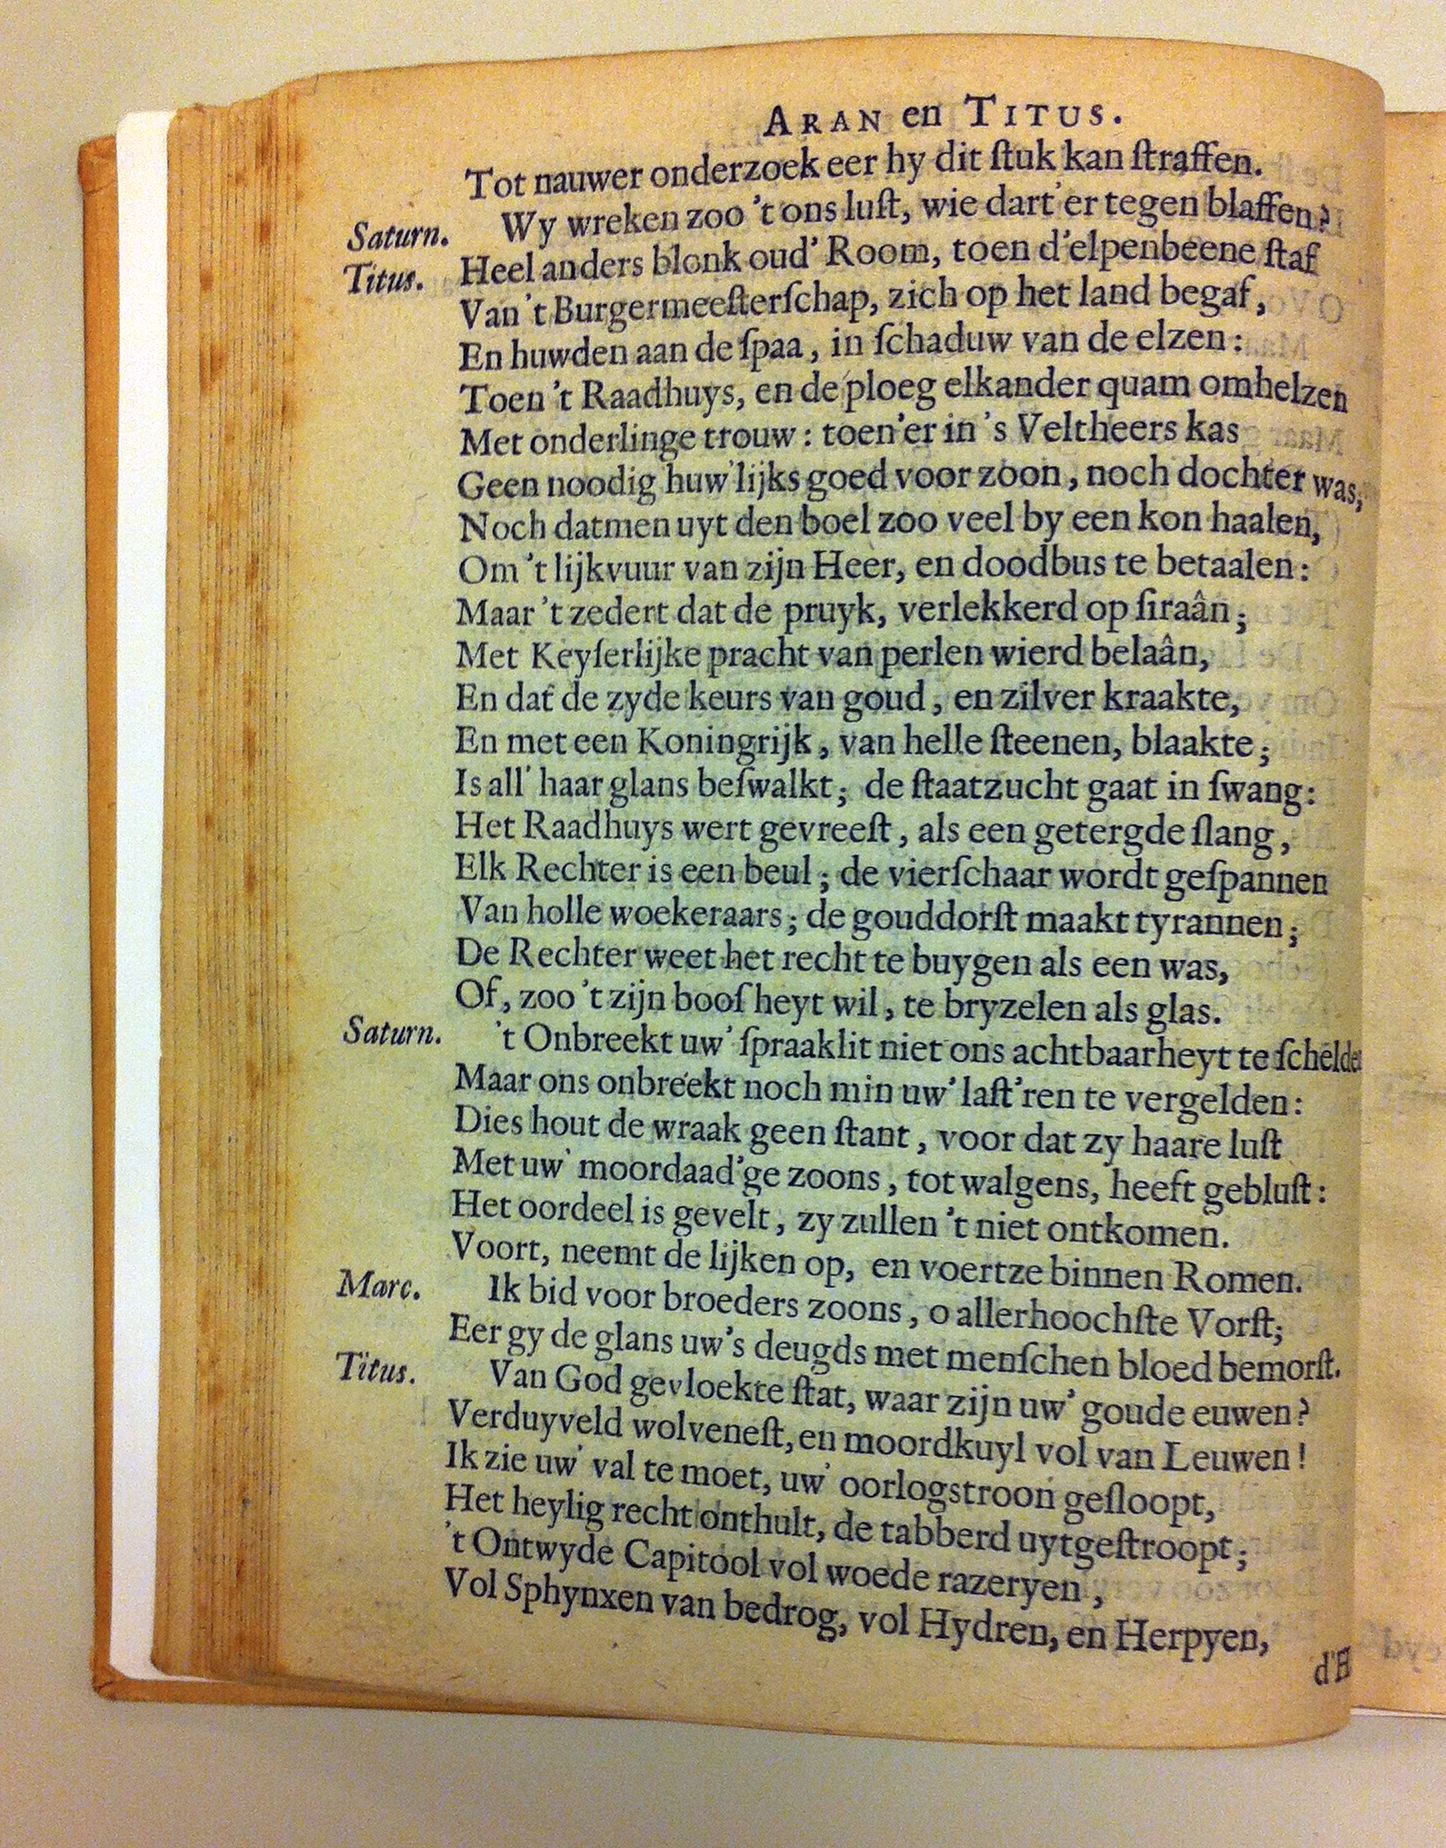 ARAN en TITUS.
Tot nauwer onderzoek eer hy dit ſtuk kan ſtraffen.
Saturn. Wy wreken zoo 't ons luſt, wie dart' er tegen blaffen?
Titus. Heel anders blonk oud' Room, toen d'elpenbeene ſtaf
Van 't Burgermeeſterſchap, zich op het land begaf,
En huwden aan de ſpaa, in ſchaduw van de elzen:
Toen 't Raadhuys, en de ploeg elkander quam omhelzen
Met onderlinge trouw: toen'er in 's Veltheers kas
Geen noodig huw'lijks goed voor zoon, noch dochter was,
Noch datmen uyt den boel zoo veel by een kon haalen,
Om 't lijkvuur van zijn Heer, en doodbus te betaalen:
Maar 't zedert dat de pruyk, verlekkerd op ſiraân;
Met Keyſerlijke pracht van perlen wierd belaân,
En dat de zyde keurs van goud, en zilver kraakte,
En met een Koningrijk, van helle ſteenen, blaakte;
Is all' haar glans beſwalkt; de ſtaatzucht gaat in ſwang:
Het Raadhuys wert gevreeſt, als een getergde ſlang,
Elk Rechter is een beul; de vierſchaar wordt geſpannen
Van holle woekeraars; de gouddorſt maakt tyrannen;
De Rechter weet het recht te buygen als een was,
Of, zoo 't zijn boofheyt wil, te bryzelen als glas.
Saturn. 't Onbreekt uw' ſpraaklit niet ons achtbaarheyt te ſchelde
Maar ons onbreekt noch min uw' laſt'ren te vergelden:
Dies hout de wraak geen ſtant, voor dat zy haare luſt
Met uw' moordaad'ge zoons, tot walgens, heeft gebluſt:
Het oordeel is gevelt, zy zullen 't niet ontkomen.
Voort, neemt de lijken op, en voertze binnen Romen.
Marc. Ik bid voor broeders zoons, o allerhoochſte Vorſt;
Eer gy de glans uw's deugds met menſchen bloed bemorſt.
Titus. Van God gevloekte ſtat, waar zijn uw' goude euwen?
Verduyveld wolveneſt, en moordkuyl vol van Leuwen!
Ik zie uw' val te moet, uw' oorlogstroon geſloopt,
Het heylig recht onthult, de tabberd uytgeſtroopt;
't Ontwyde Capitool vol woede razeryen,
Vol Sphynxen van bedrog, vol Hydren, en Herpyen,